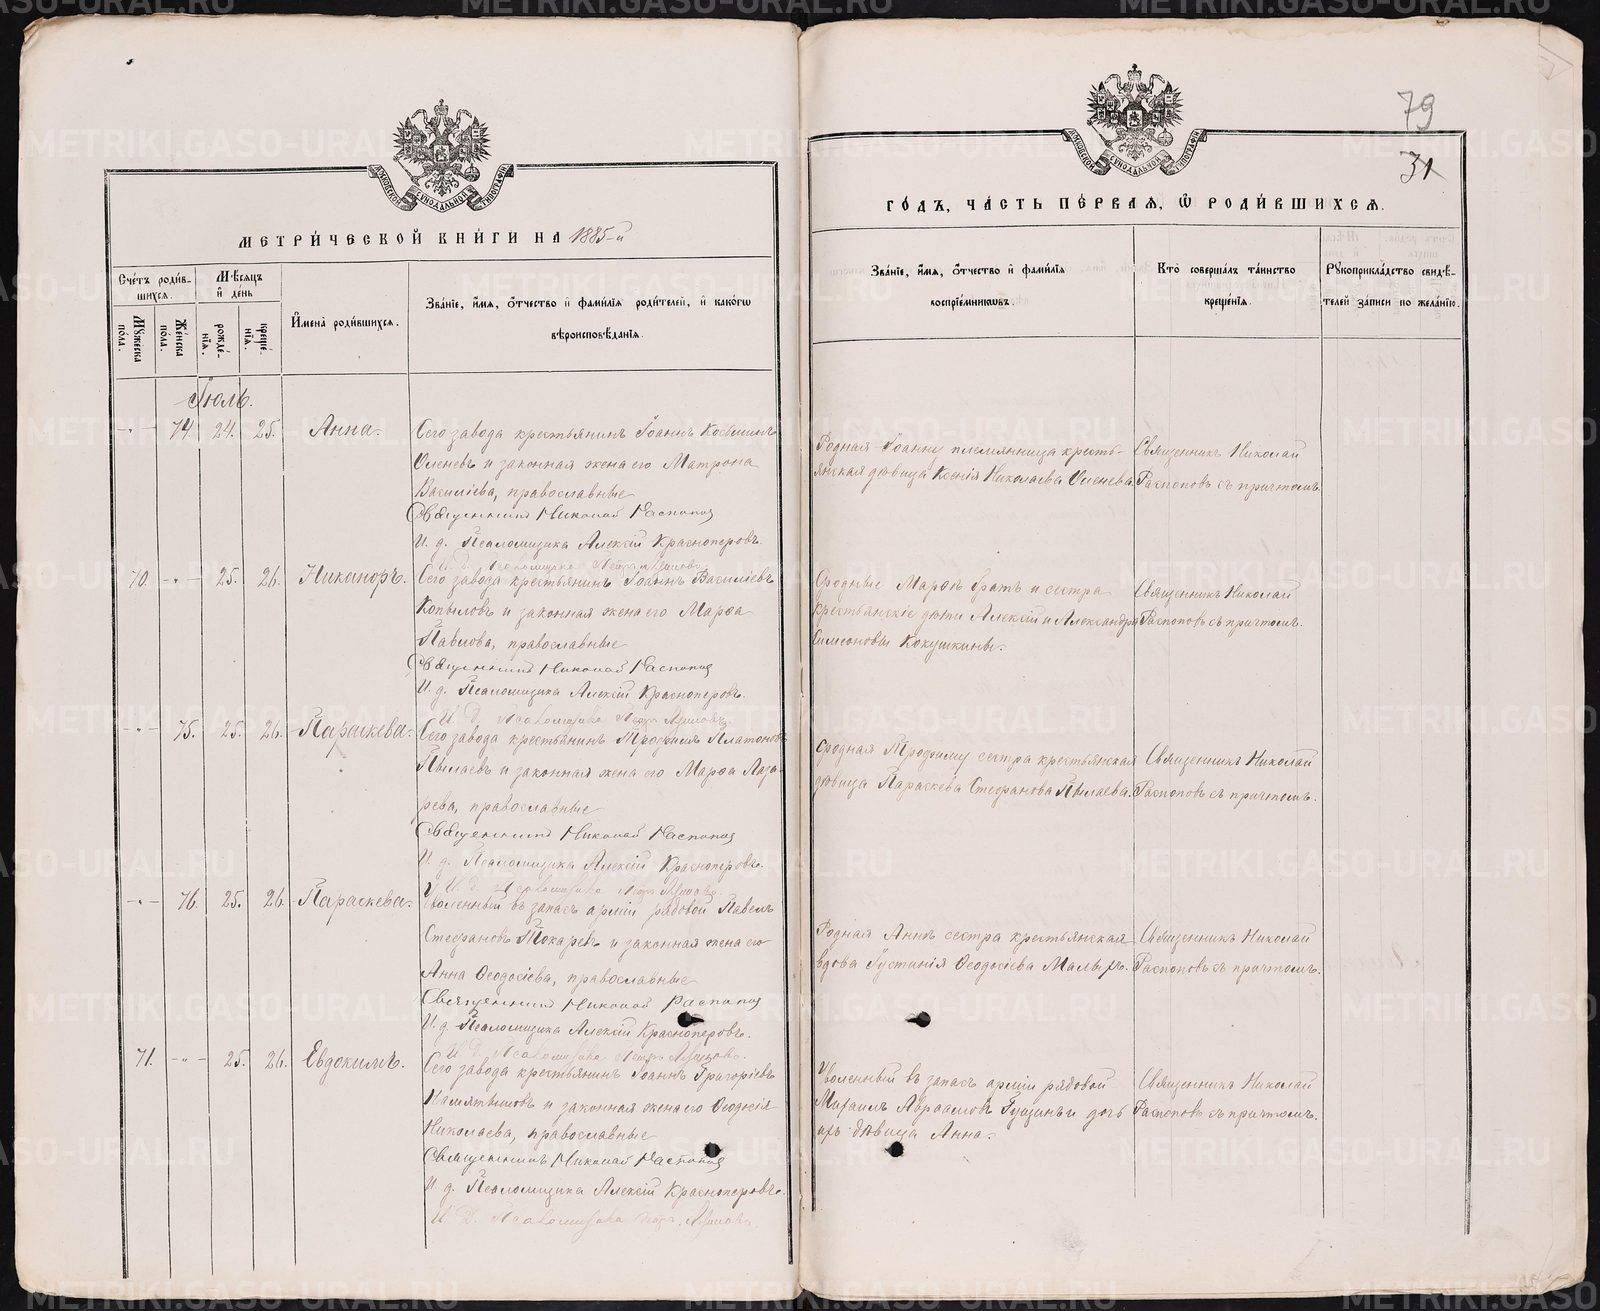 МЕТРИ́ЧЕСКОЙ КНИ́ГИ НА 1885-й
ГО́ДЪ, ЧА́СТЬ ПЕ́РВАЯ, Ѡ РОДИ́ВШИХСЯ.
79
31
Сче́тъ роди́вшихся.
Му́жеска по́ла.
Же́нска по́ла.
Мѣ́сяцъ и де́нь
рожде́нїя.
креще́нїя.
И҆мена̀ роди́вшихся.
Зва́нїе, и҆́мя, ѻ҆́тчество и҆ фами́лїя роди́телей, и҆ како́гѡ
вѣроисповѣ́данїя.
Зва́нїе, и҆́мя, ѻ҆́тчество и҆ фами́лїя
воспрїе́мниковъ.
Кто̀ соверша́лъ та́инство
креще́нїя.
Рꙋкоприкла́дство свидѣ́-
телей за́писи по жела́нїю.
Іюль.
-„- 74. 24. 25. Анна.
Сего завода крестьянинъ Іоаннъ Косьминъ
Оленевъ и законная жена его Матрона
Василіева, православные
Священникъ Николай Распопов
И. д. Псаломщика Алексій Красноперовъ.
Родная Іоанну племянница кресть-
янская дѣвица Ксенія Николаева Оленева.
Священникъ Николай
Распоповъ съ причтомъ.
70. -„- 25. 26. Никаноръ.
И. д. Псаломщика Петръ
Сего завода крестьянинъ Іоаннъ Василіевъ
Копыловъ и законная жена его Марѳа
Павлова, православные
Священникъ Николай Распопов
И. д. Псаломщика Алексій Красноперовъ.
Сродные Марѳѣ братъ и сестра
крестьянскіе дѣти Алексій и Александра
Симеоновы Кокушкины.
Священникъ Николай
Распоповъ съ причтомъ.
-„- 75. 25. 26. Параскева.
И. Д. Псаломщика Петръ
Сего завода крестьянинъ Трофимъ Платоновъ
Пылаевъ и законная жена его Марѳа Лаза-
рева, православные
Священникъ Николай Распопов
И. д. Псаломщика Алексій Красноперовъ.
Сродная Трофиму сестра крестьянская
дѣвица Параскева Стефанова Пылаева.
Священникъ Николай
Распоповъ съ причтомъ.
-„- 76. 25. 26. Параскева.
И. Д. Псаломщика Петръ
Уволенный въ запасъ арміи рядовой Павелъ
Стефановъ Токаревъ и законная жена его
Анна Ѳеодосіева, православные
Священникъ Николай Распопов
И. д. Псаломщика Алексій Красноперовъ.
Родная Аннѣ сестра крестьянская
вдова Іустинія Ѳеодосіева
Священникъ Николай
Распоповъ съ причтомъ.
71. -„- 25. 26. Евдокимъ.
И. Д. Псаломщика Петръ
Сего завода крестьянинъ Іоаннъ Григоріевъ
и законная жена его Ѳеодосія
Николаева, православные
Священникъ Николай Распопов
И. д. Псаломщика Алексій Красноперовъ.
И. Д. Псаломщика Петръ
Уволенный въ запасъ арміи рядовой
Михаилъ Авраамовъ Гущинъ и дочь
его дѣвица Анна.
Священникъ Николай
Распоповъ съ причтомъ.
METRIKI.GASO-URAL.RU